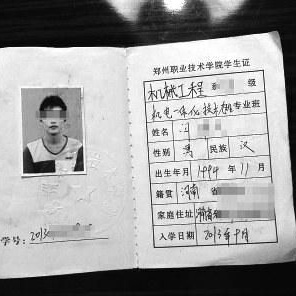 郑州职业技术学院学生证
机械工程 系 级
机电一体化技术 专业 班
姓名 江
性别 男 民族 汉
出生年月 1994年11月
籍贯 河南 省
家庭住址
入学日期 2013年 月
学号: 2013